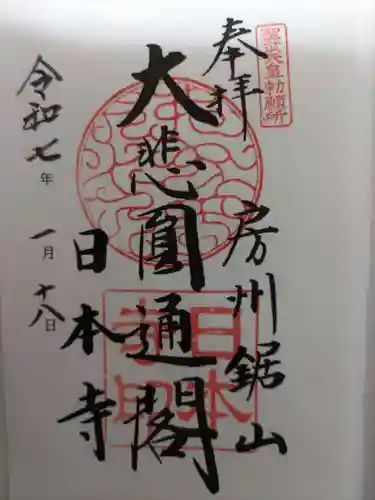 聖武天皇勅願所
奉拝
房州鋸山
大悲圓通閣
日本寺
日本寺印
令和七年一月十八日